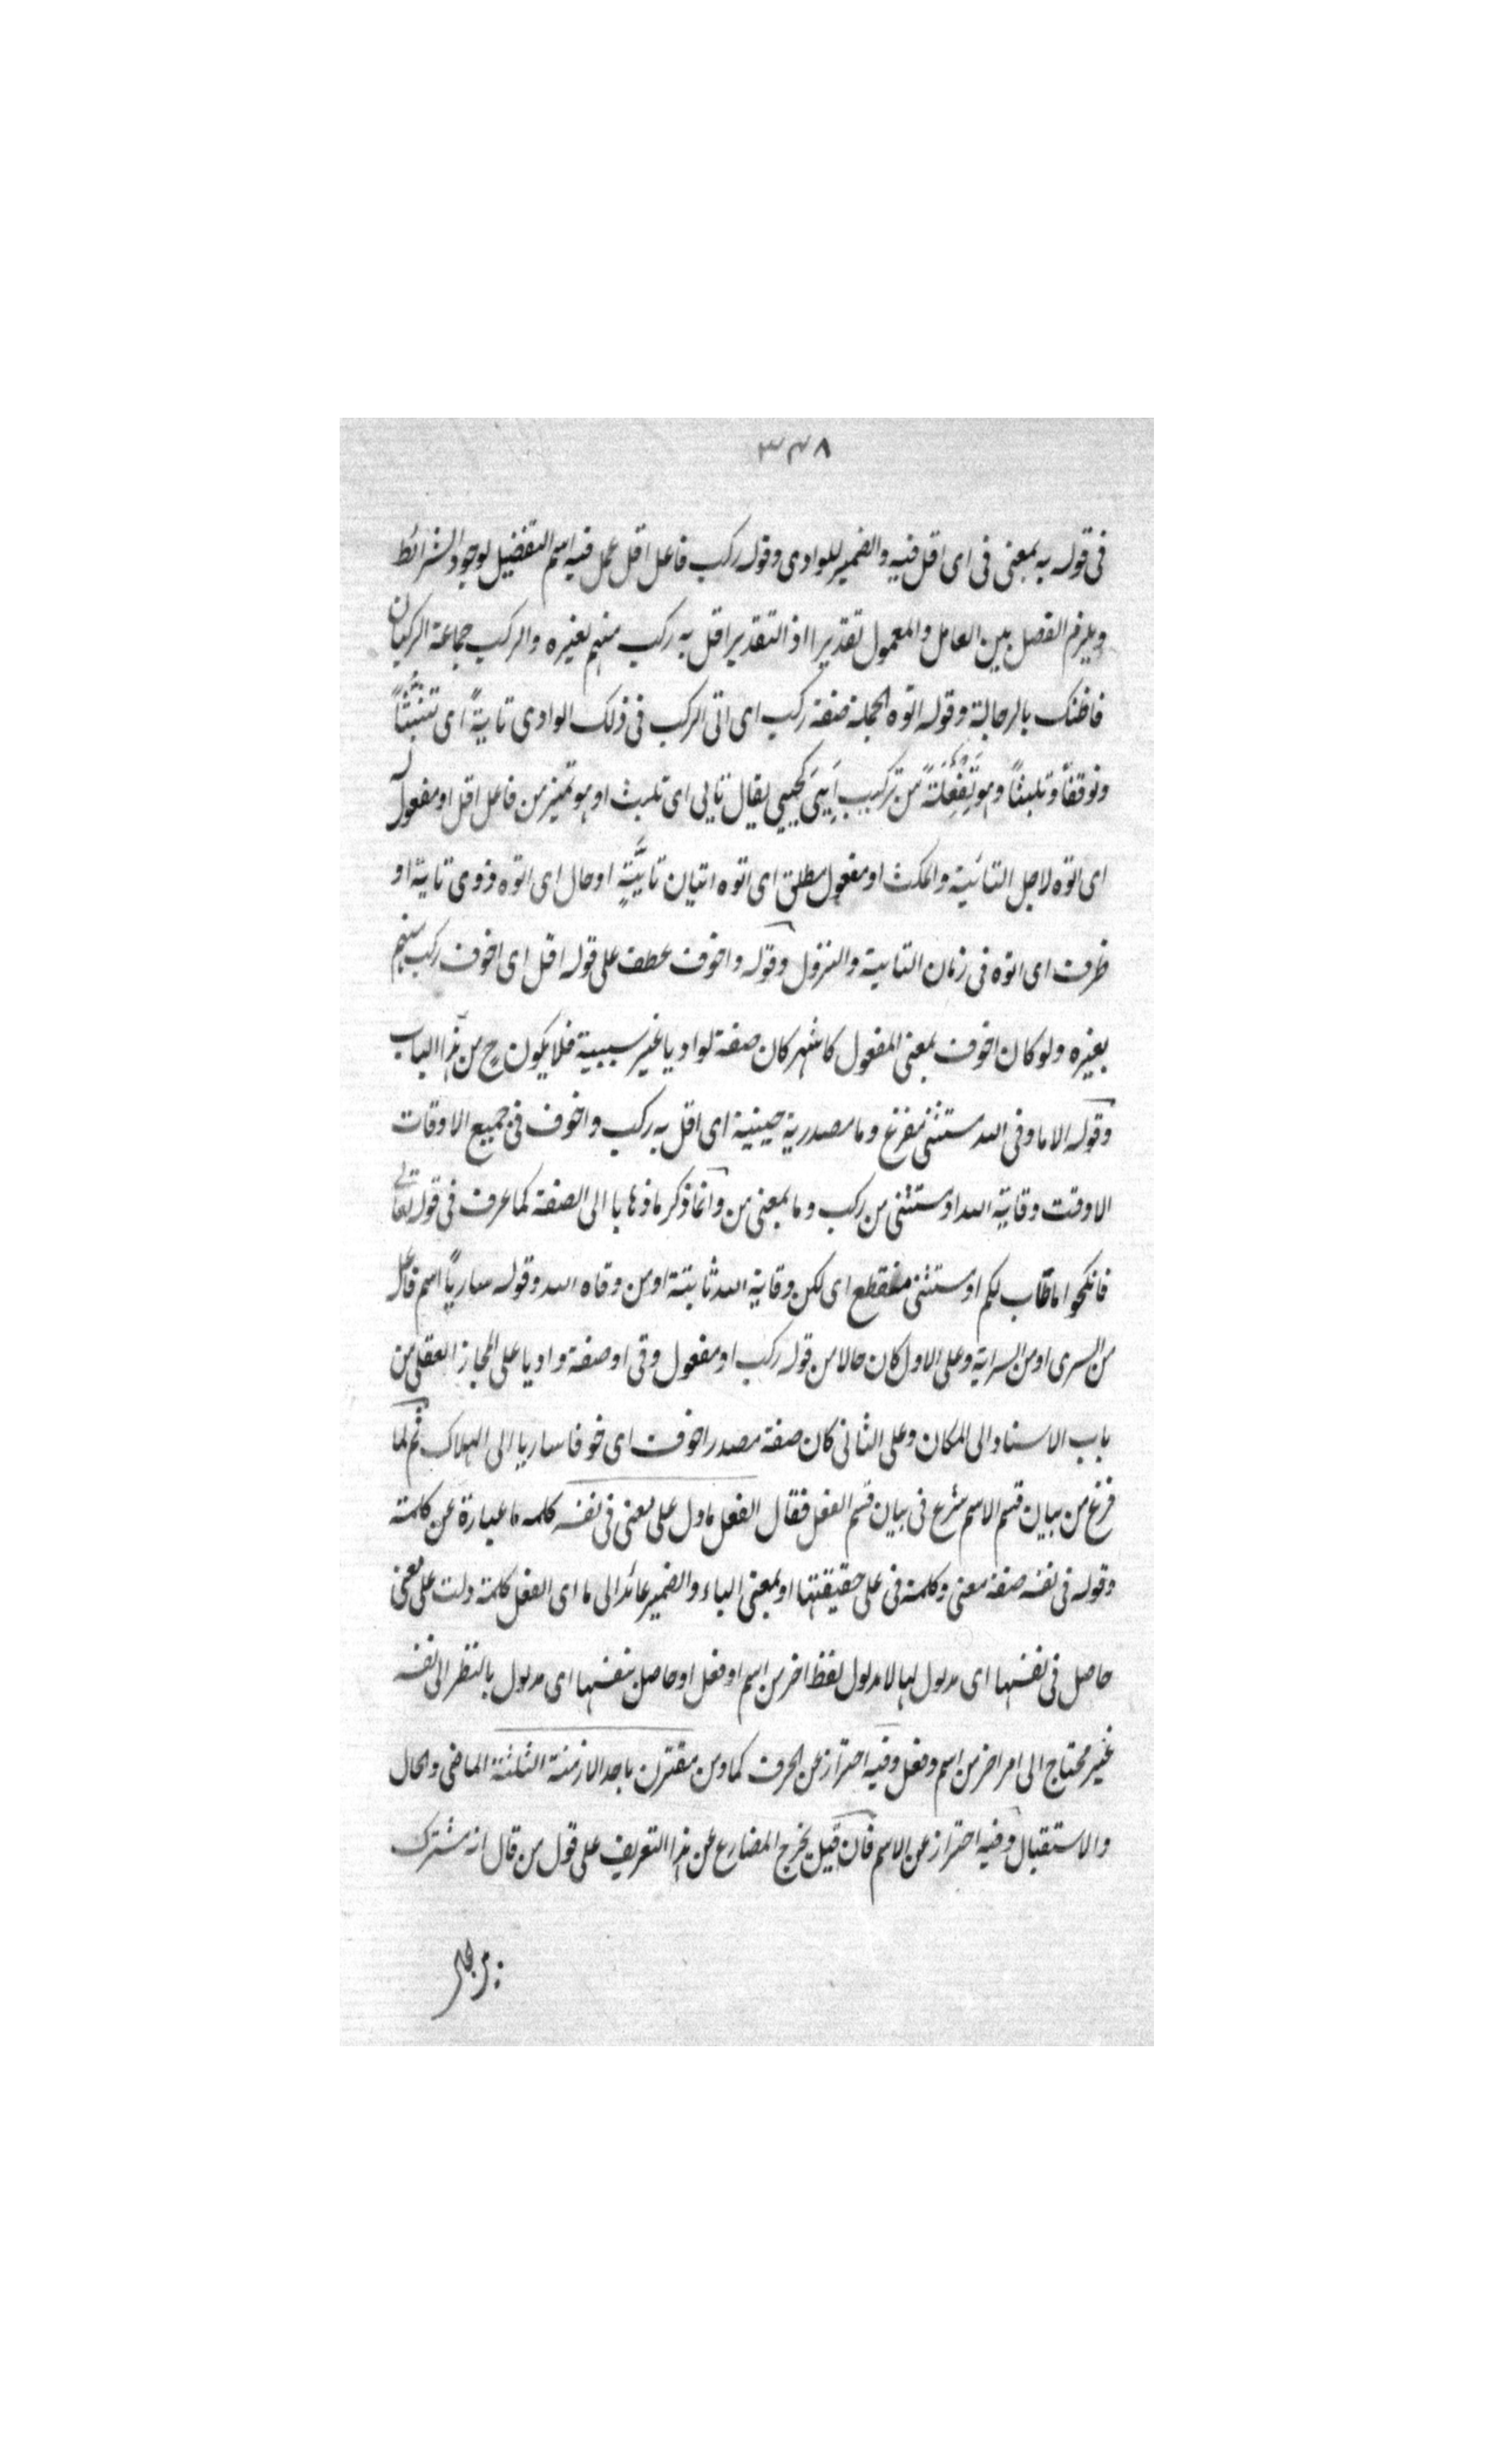 ٣٣٨
فى قوله به بمعنى فى اى اقل فيه والضمير للوادى وقوله ركب فاعل اقل عمل فيه اسم التفضيل لوجود الشرائط
ويلزم الفصل بين العامل والمعمول تقديرا اذ التقدير اقل به ركب منهم بغيره والركب جماعة الركبان
فاظنك بالرجالة وقوله اتوه الجملة صفة ركب اى اتى الركب فى ذلك الوادى تايةً اى تثبتاً
وتوقفاً وتلبثاً وهو تَفْعِلَةً من تركيب اَيَىَ كحيى يقال تايى اى تلبث او هو تميز من فاعل اقل او مفعول له
اى اتوه لاجل التائية والمكث او مفعول مطلق اى اتوه اتيان تايَّةٍ او حال اى اتوه ذوى تاية او
ظرف اى اتوه فى زمان التاية والنزول وقوله واخوف عطف على قوله اقل اى اخوف ركب منهم
بغيره ولو كان اخوف بمعنى المفعول كاشهر كان صفة لواديا غير سببية فلا يكون ح من هذا الباب
وقوله الا ما وقى الله مستثنى مفرغ وما مصدرية حينية اى اقل به ركب واخوف فى جميع الاوقات
الا وقت وقاية الله او مستثنى من ركب وما بمعنى من وانما ذكر ما ذهابا الى الصفة كما عرف فى قوله تعالى
فانكحوا ما طاب لكم او مستثنى منقطع اى لكن وقاية الله ثابتة او من وقاه الله وقوله ساريًا اسم فاعل
من السرى او من السراية وعلى الاول كان حالا من قوله ركب او مفعول وقى او صفة واديا على المجاز العقلى من
باب الاسناد الى المكان وعلى الثانى كان صفة مصدر اخوف اى خوفا ساريا الى الهلاك ثم لما
فرغ من بيان قسم الاسم شرع فى بيان قسم الفعل فقال الفعل مادل على معنى فى نفسه كلمه ما عبارة عن كلمة
وقوله فى نفسه صفة معنى وكلمة فى على حقيقتها او بمعنى الباء والضمير عائد الى ما اى الفعل كلمة دلت على معنى
حاصل فى نفسها اى مدلول لها لا مدلول لفظ اخر من اسم او فعل او حاصل بنفسها اى مدلول بالنظر الى نفسه
غير محتاج الى امر اخر من اسم وفعل وفيه احتراز عن الحرف كما ومن مقترن باحد الازمنة الثلثة الماضى والحال
والاستقبال وفيه احتراز عن الاسم فان قيل يخرج المضارع عن هذا التعريف على قول من قال انه مشترك